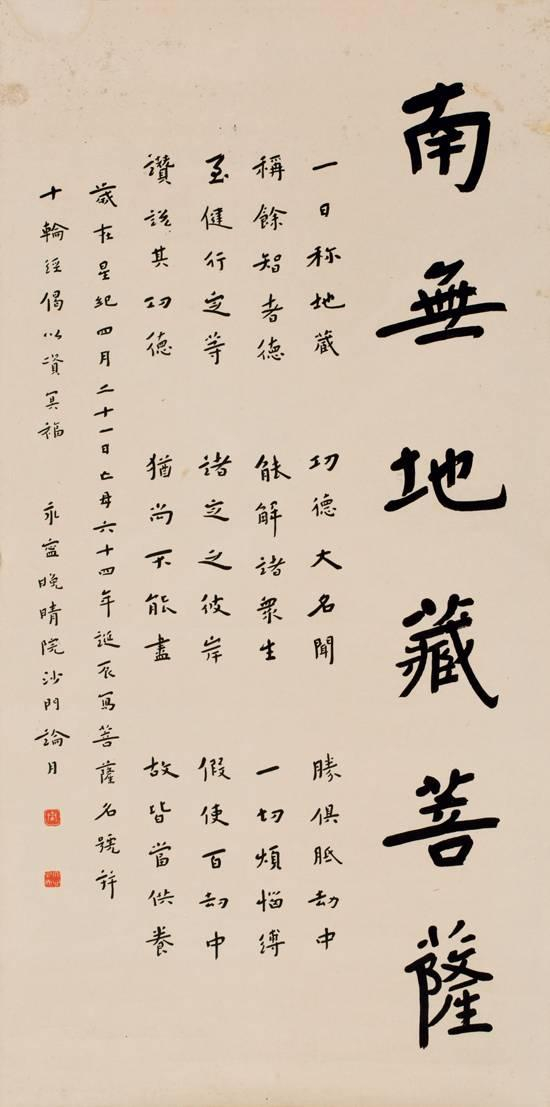 南無地藏菩薩
一日称地藏 功德大名聞 勝俱胝劫中
稱餘智者德 能解諸衆生 一切煩惱縛
至健行定等 諸定之彼岸 假使百劫中
讚說其功德 猶尚不能盡 故皆當供養
歲在星紀四月二十一日亡母六十四年誕辰寫菩薩名號并
十輪經偈以資冥福 永寧晚晴院沙門論月